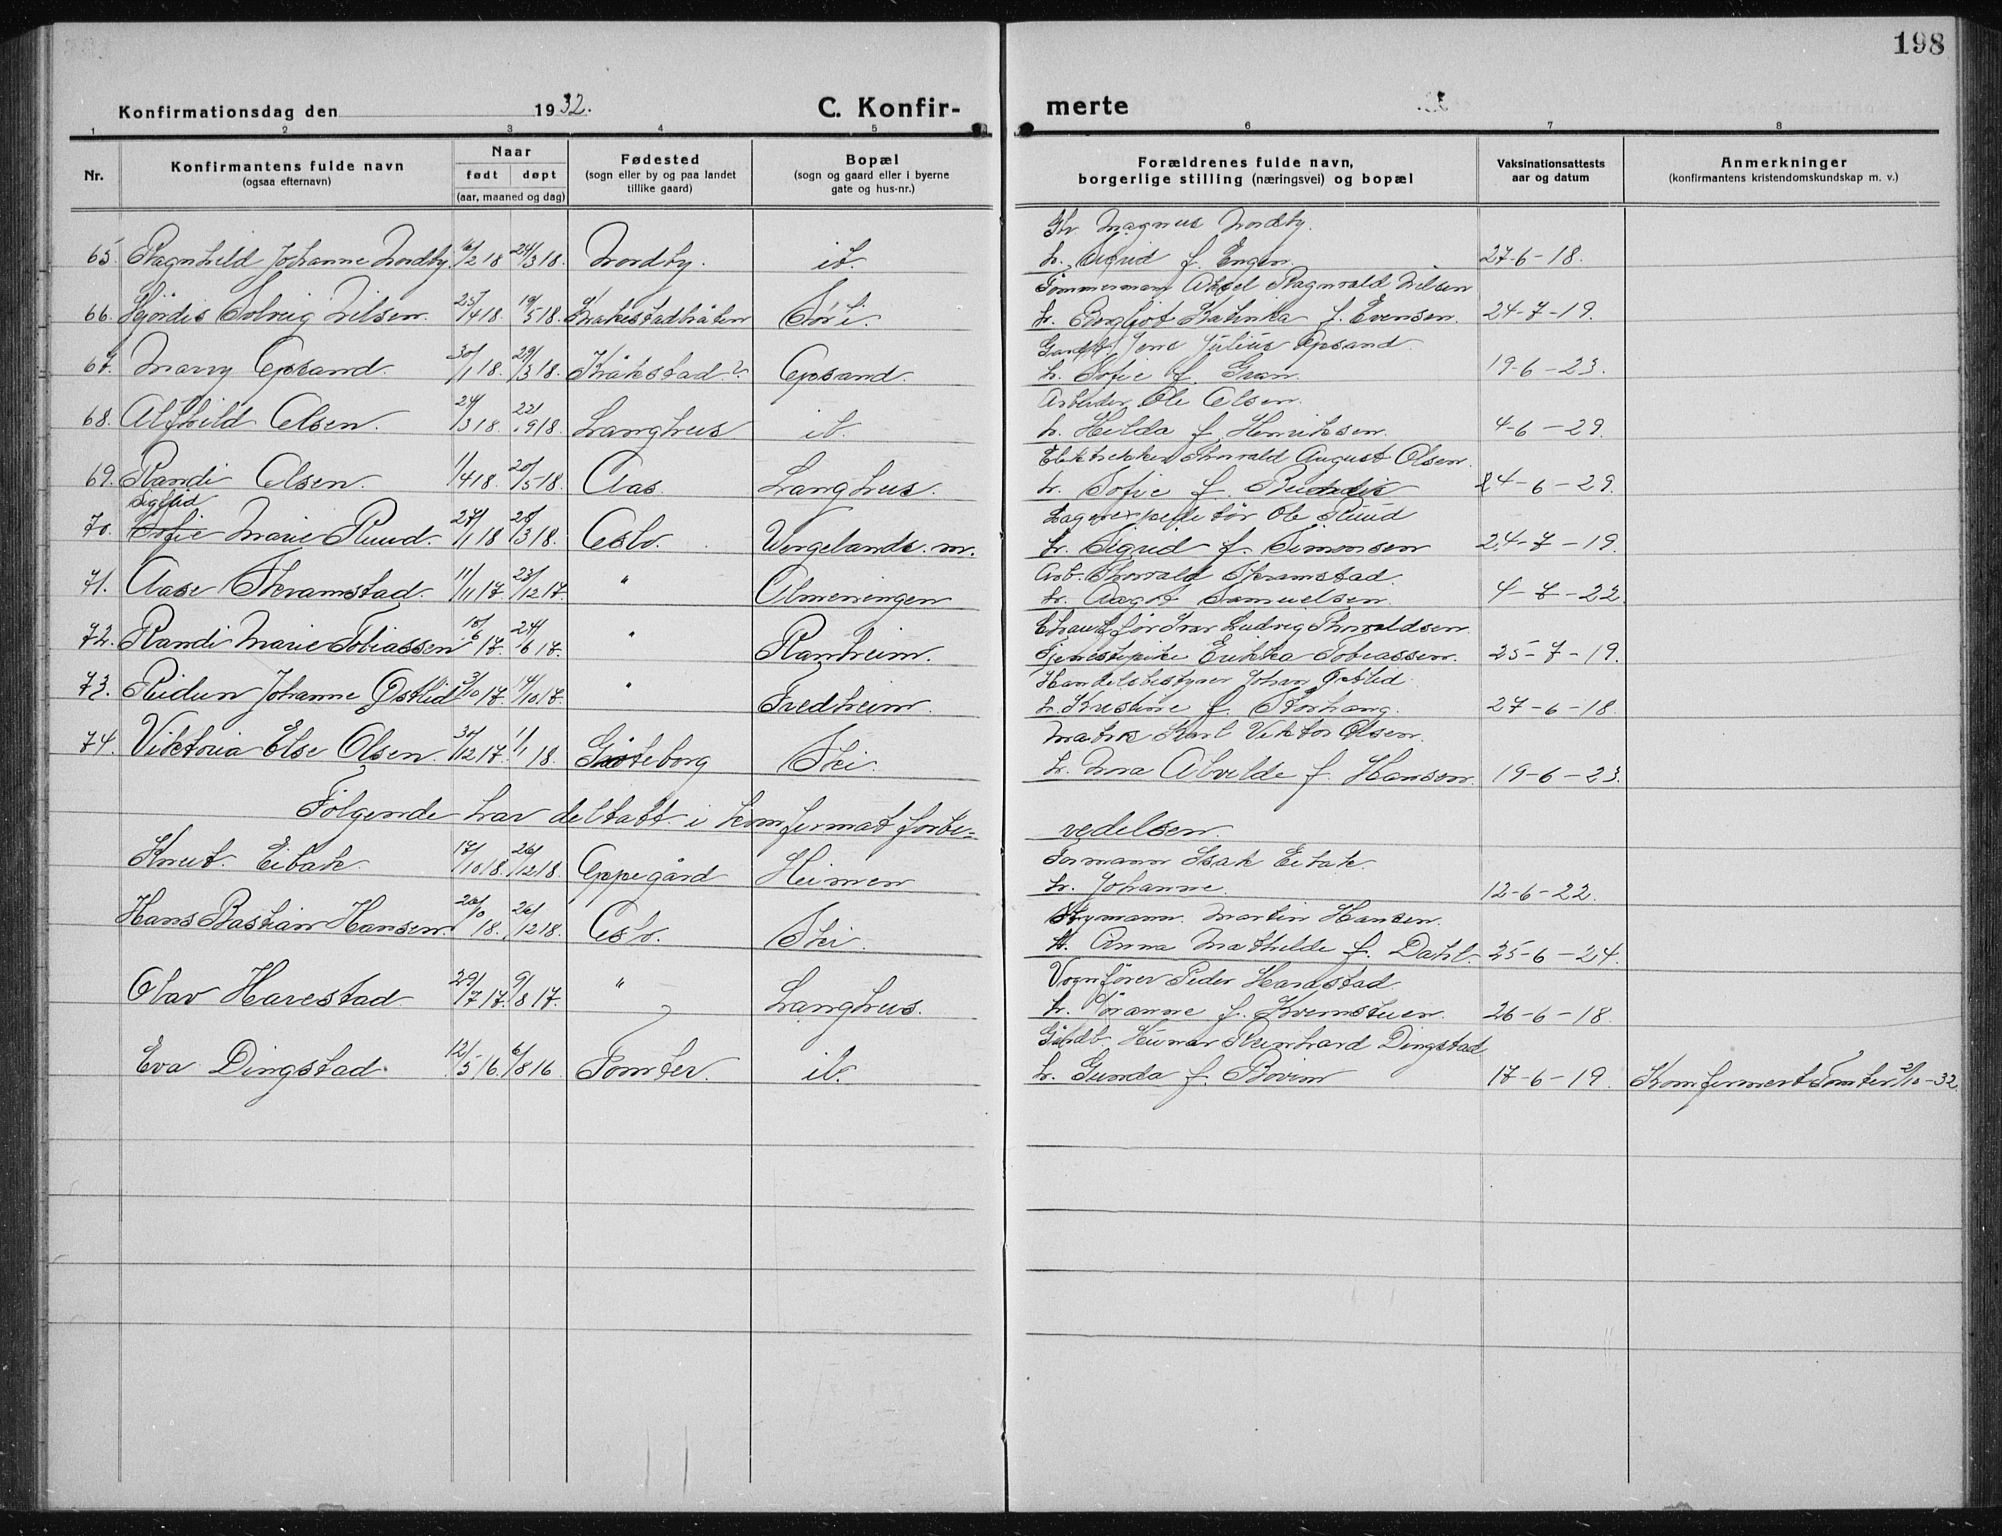 198
Konfirmationsdag den 1932. C. Konfir- merte
1 2 3 4 5 6 7 8
Nr. Konfirmantens fulde navn (ogsaa efternavn) Naar født døpt (aar, maaned og dag) Fødested (sogn eller by og paa landet tillike gaard) Bopæl (sogn og gaard eller i byerne gate og hus-nr.) Forældrenes fulde navn, borgerlige stilling (næringsvei) og bopæl Vaksinationsattests aar og datum Anmerkninger (konfirmantens kristendomskundskap m. v.)
Magnus Nordby.
65. Ragnhild Johanne Nordby. 16/2 18 24/3 18. Nordby. ib. h. Sigrid f. Engen. 27-6-18.
Tømmermann Aksel Ragnvald Nilsen
66. Hjördis Solveig Nilsen. 25/4 18. 19/5 18. Kråkestadbråten h. Bergljot Katinka f. Evensen. 24-7-19.
Gaardb. Jens Julius Opsand.
67. Marry Opsand. 30/1 18. 29/3 18. Kråkstad? Opsand. h. Sofie f. Gran. 19-6-23.
Arbeider Ole Olsen.
68. Alfhild Olsen. 24/3 18. 22/9 18. Langhus ib. h. Hilda f. Henriksen. 4-6-29.
Elektriker Thorvald August Olsen.
69. Randi Olsen. 1/4 18. 20/5 18. Aas. Langhus. h. Sofie f. 24-6-29.
Sigfrid Lagerexpeditör Ole Ruud
70. Sofie Marie Ruud. 27/1 18 28/3 18. Oslo. Vergelands. m. h. Sigrid f. Simonsen 24-7-19.
Arb. Thorvald Skramstad.
71. Aase Skramstad. 11/11 17 23/12 17. " Almeningen h. Aagot Samuelsen. 4-7-22.
Chaufför Ivar Ludvig Thorvaldsen.
72. Randi Marie Tobiassen 10/6 17. 24/6 17. " Ranheim. Tjenestepike Erikka Tobiassen. 25-7-19.
Handelsbestyrer Johan Østlid.
73. Reidun Johanne Østlid 3/10 17. 14/10 17. " Fredheim. h. Kristine f. Storhaug. 27-6-18.
Matros Karl Viktor Olsen.
74. Viktoria Else Olsen. 30/12 17. 1/1 18. Gøteborg Ski. h. Mna Alvilde f. Hansen. 19-6-23.
Følgende har deltatt i konfirmat. forbe=vedelsen.
Formann Isak Eibak.
Knut. Eibak. 17/10 18. 26/12 18. Oppegård Heimen h. Johanne. 12-6-22.
Styrmann. Martin Hansen.
Hans Bastian Hansen. 20/10 18. 26/12 18. Oslo. Ski. h. Anna Mathilde f. Dahl. 25-6-24.
Vognfører Peder Harestad
Olav Harestad 29/7 17. 9/8 17. " Langhus. h. Jöranne f. Kvernstuen. 26-6-18.
Reinhard Dingstad
Eva Dingstad. 12/5 16. 6/8 16 Tomter. ib. h. Gunda f. Bovim 17-6-19. Konfirmert Tomter 2/10-32.